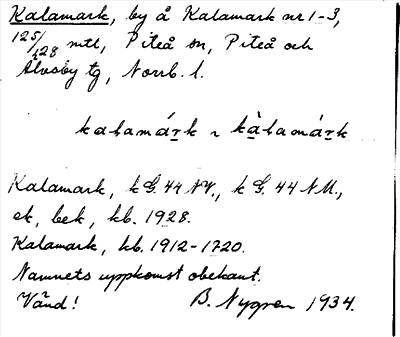 Kalamark, by å Kalamark nr 1-3,
125/128 mtl, Piteå sn, Piteå och
Älvsby tg, Norrb. l.
kalamárk ~ kàlamárk
Kalamark, k G. 44 NV., k G. 44 NM.,
ek, bek, kb. 1928.
Kalamark, kb. 1912-1720.
Namnets uppkomst obekant.
Vänd! B. Nygren 1934.